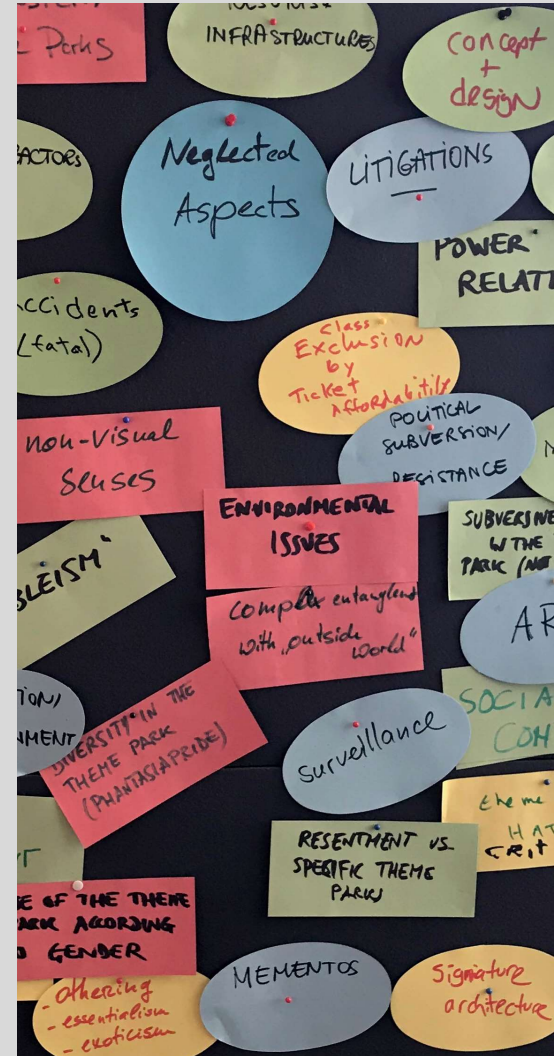 Parks
INFRASTRUCTURES
concept
+
design
ACTORS
Neglected
Aspects
LITIGATIONS
POWER
RELATI
ccidents
(fatal)
Class
Exclusion
by
Ticket
Affordability
POLITICAL
SUBVERSION/
RESISTANCE
non-visual
senses
ENVIRONMENTAL
ISSUES
SUBVERSIVE
W THE
PARK (NOT
BLEISM"
complex entanglent
with "outside
world"
AR
TION/
NMENT
DIVERSITY IN THE
THEME PARK
(PHANTASIAPRIDE)
surveillance
SOCIA
COM
theme
HAT
CRIT
RESENTMENT VS.
SPECIFIC THEME
PARKS
E OF THE THEME
ARK ACCORDING
O GENDER
- othering
- essentialism
- exoticism
MEMENTOS
Signature
architecture